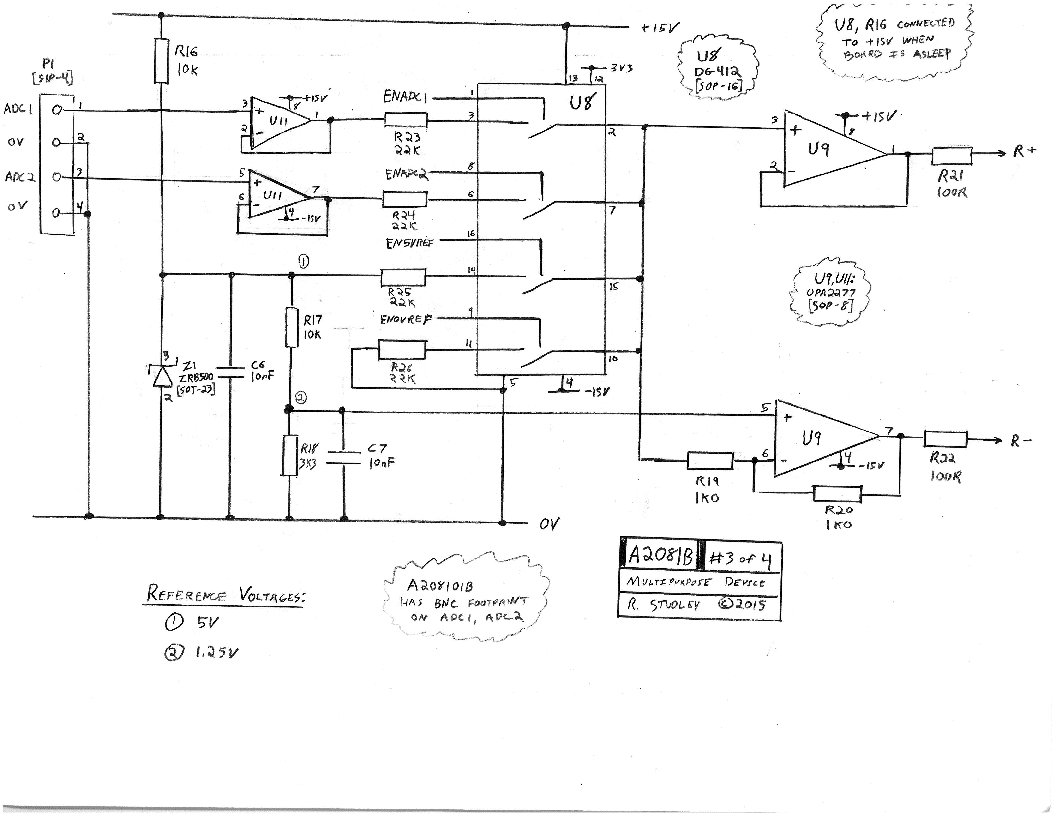 +15V
U8, R16 CONNECTED
TO +15V WHEN
BOARD IS ASLEEP
R16
10K
U8
DG412
[SOP-16]
P1
[SIP-4]
3V3
13
12
ADC1
1
3
+15V
8
U11
1
2
+
-
ENADC1
1
U8
3
2
R23
22K
3
+
+15V
8
U9
1
2
-
R+
R21
100R
0V
2
ADC2
3
5
+
7
U11
6
-
4
-15V
0V
4
ENADC2
8
6
7
R24
22K
EN5VREF
16
1
14
15
R25
22K
U9, U11:
OPA2277
[SOP-8]
R17
10K
EN0VREF
9
11
10
R26
22K
5
4
-15V
3
1
Z1
ZRB500
[SOT-23]
2
C6
10nF
2
5
+
U9
7
6
-
4
-15V
R-
R22
100R
R18
3K3
C7
10nF
R19
1K0
R20
1K0
0V
A2081B #3 of 4
MULTIPURPOSE DEVICE
R. STUDLEY ©2015
A208101B
HAS BNC FOOTPRINT
ON ADC1, ADC2
REFERENCE VOLTAGES:
1 5V
2 1.25V